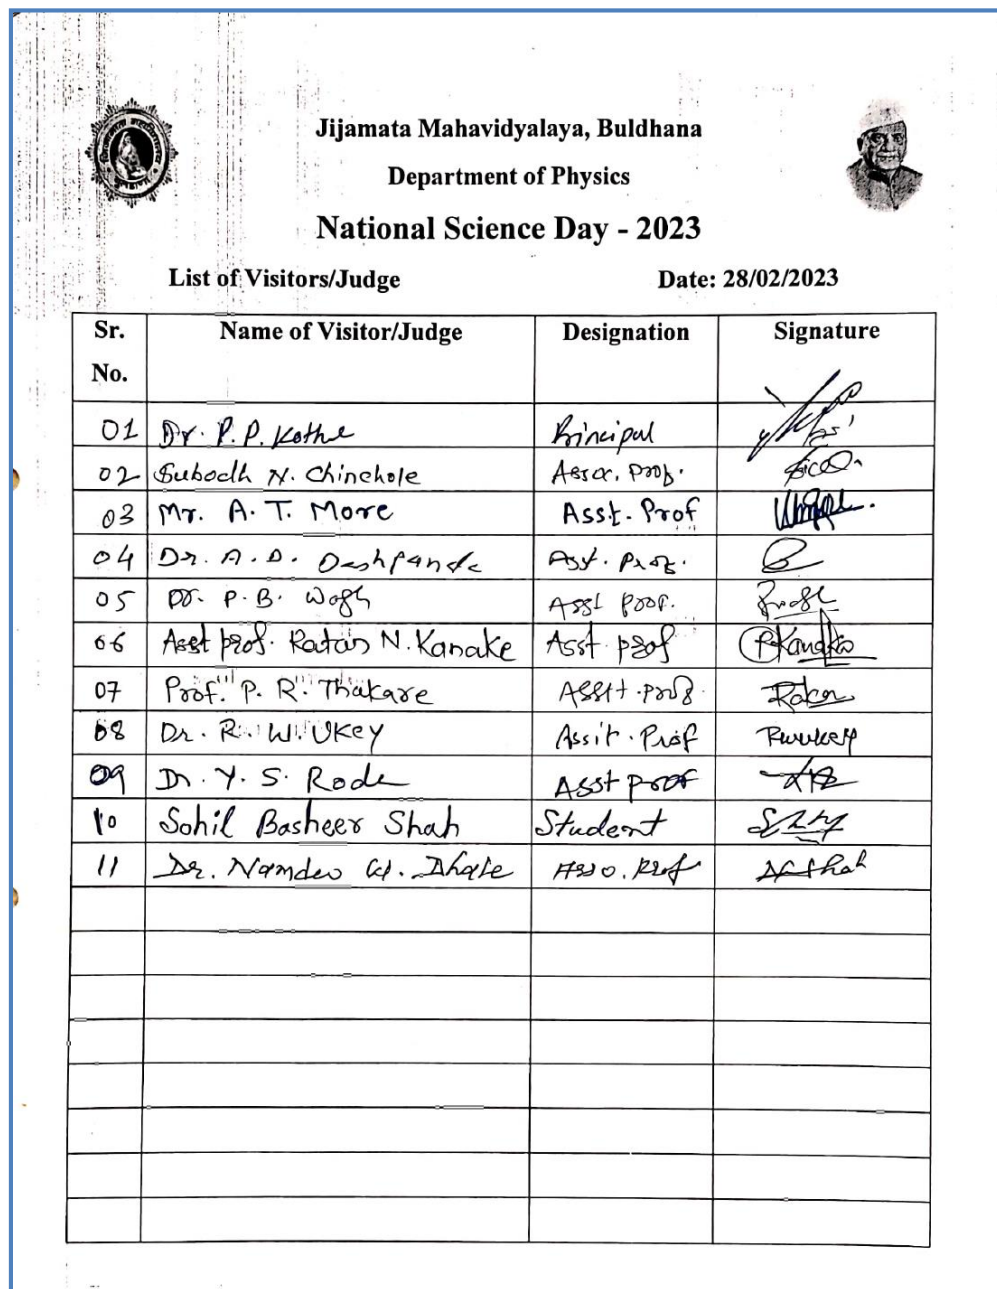 Jijamata Mahavidyalaya, Buldhana
Department of Physics
National Science Day - 2023
List of Visitors/Judge Date: 28/02/2023
Sr. No. Name of Visitor/Judge Designation Signature
01 Dr. P. P. Kothe Principal
02 Subodh N. Chinchole Asso. Prof.
03 Mr. A. T. More Asst. Prof
04 Dr. A. D. Deshpande Asst. Prof.
05 Dr. P. B. Wagh Asst Prof.
06 Asst prof. Ratan N. Kanake Asst prof RKanake
07 Prof. P. R. Thakare Asstt. prof.
08 Dr. R. W. Ukey Assit. Prof Rwukey
09 Dr. Y. S. Rode Asst prof
10 Sohil Basheer Shah Student
11 Dr. Namdeo Dhale Asso. Prof